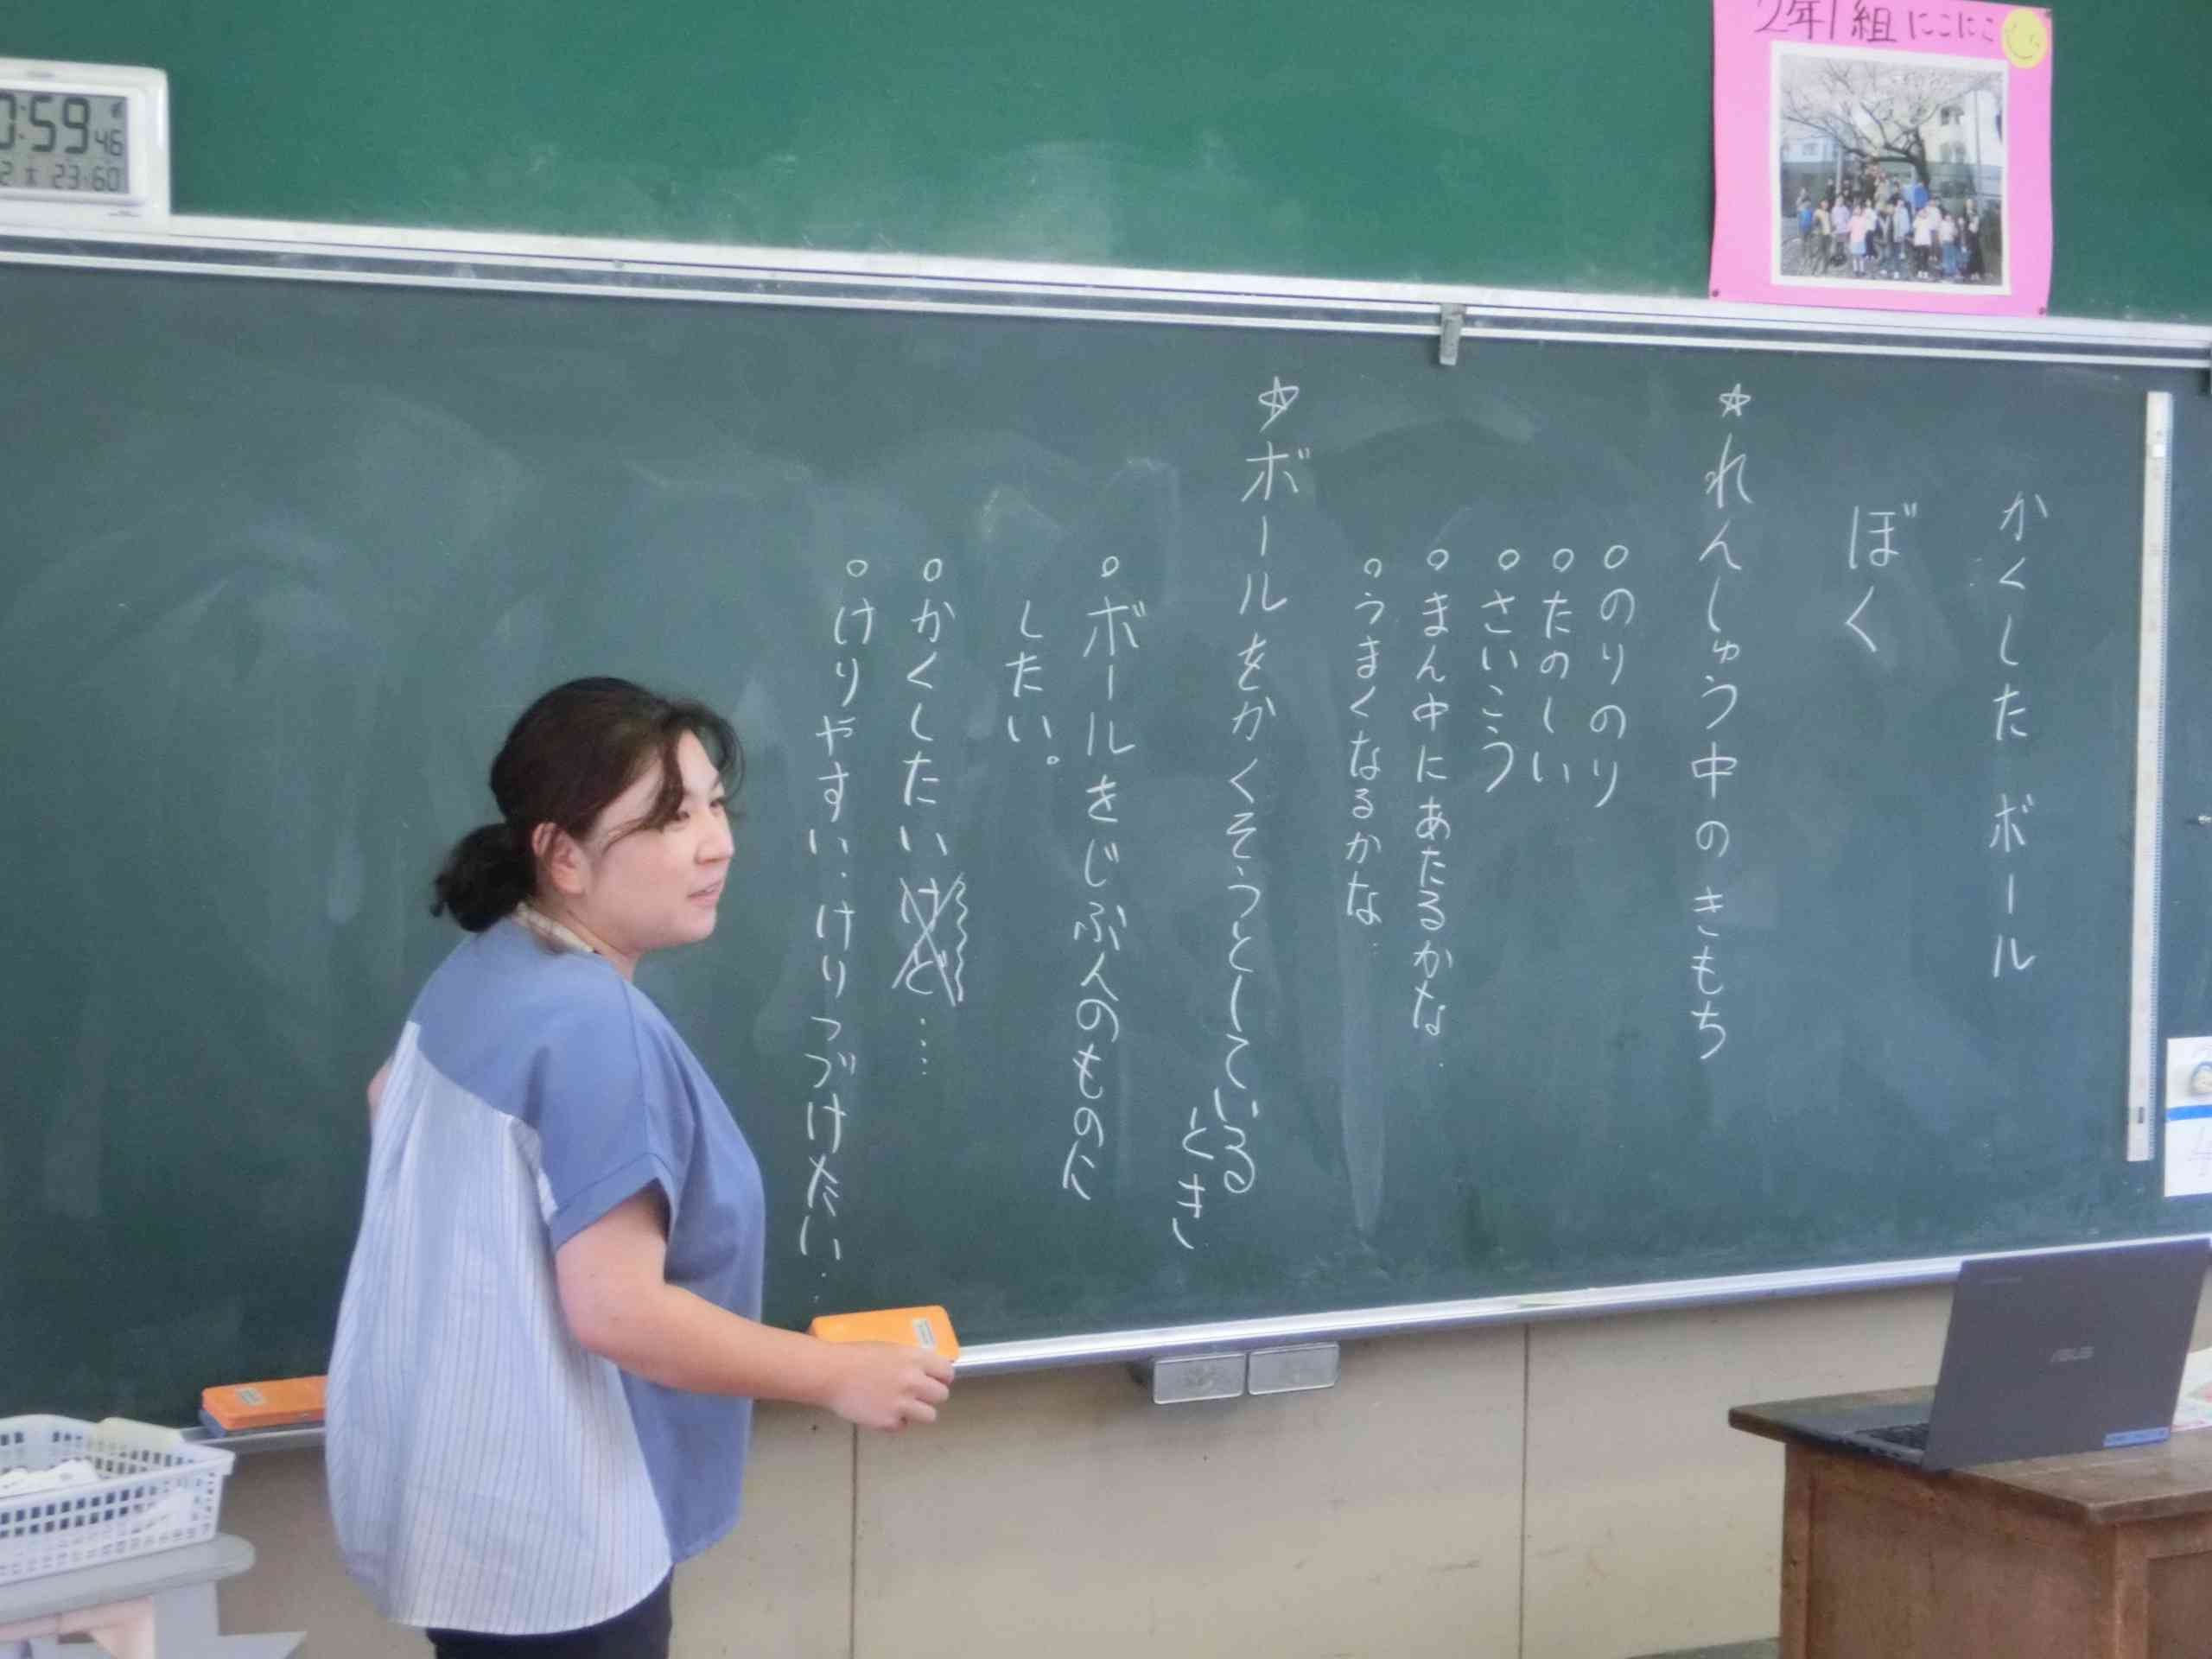 2年1組 にこにこ
0:59 46
23:60
かくした ボール
ぼく
☆れんしゅう中のきもち
○のりのり
○たのしい
○さいこう
○まん中にあたるかな‥
○うまくなるかな‥
☆ボールをかくそうとしている
とき
○ボールをじぶ人のものに
したい。
○かくしたいけど‥‥
○けりやすい‥けりつづけたい‥
ASUS